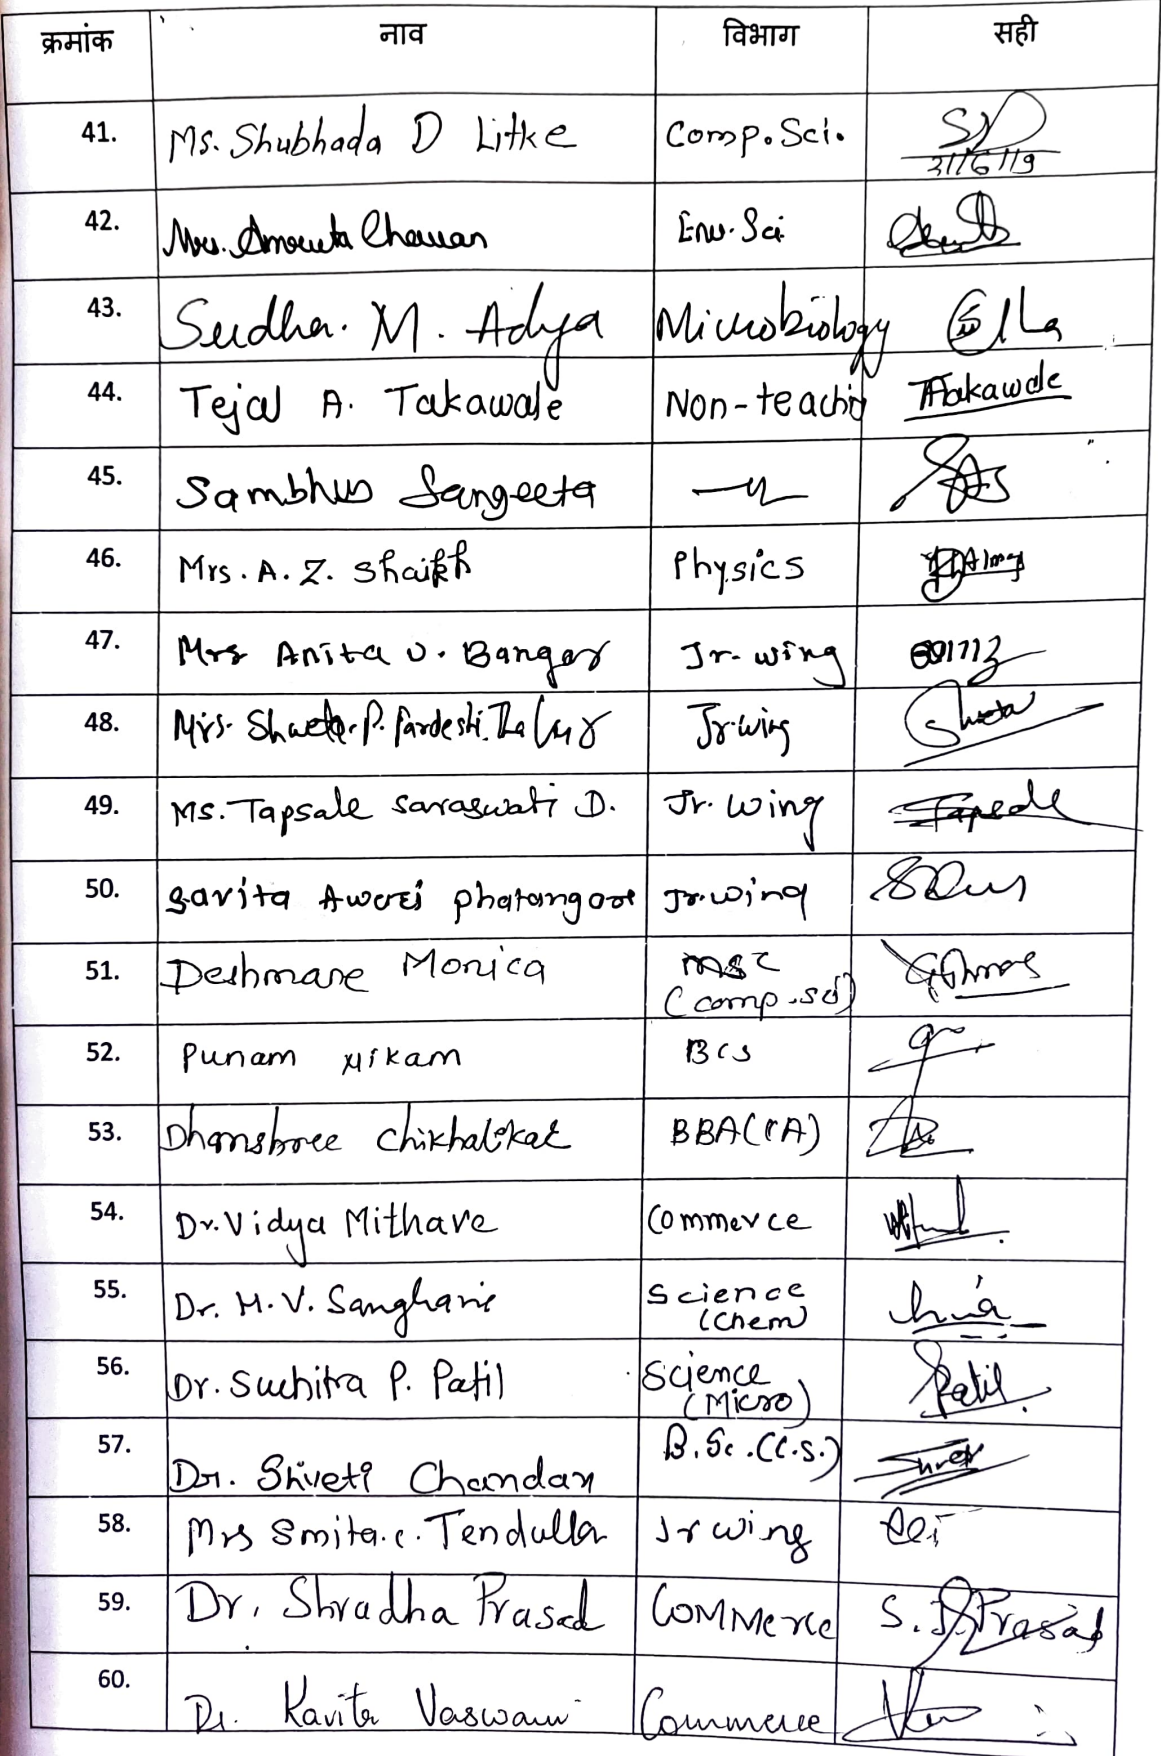 क्रमांक नाव विभाग सही
41. Ms. Shubhada D Litke Comp. Sci.
21/6/19
42. Mrs. Amruta Chavan Env. Sci
43. Sudha. M. Adya Microbiology
44. Tejal A. Takawale Non-teachig Takawale
45. Sambhus Sangeeta
46. Mrs. A. Z. Shaikh Physics
47. Mrs Anita U. Bangar Jr- wing
48. Mrs. Shweta. P. Pardeshi. Jr. wing Shweta
49. Ms. Tapsale Saraswati D. Jr. wing Tapsale
50. Savita Awari Phatangare Jr. wing
51. Deshmane Monica MSC
(comp. sci)
52. Punam Nikam BCS
53. Dhanshree Chikhalikar BBA(CA)
54. Dr. Vidya Mithare Commerce
55. Dr. M. V. Sanghani Science
(Chem)
56. Dr. Suchitra P. Patil Science Patil
(Micro)
57. Dr. Shveti Chandan B.Sc. (C.S.)
58. Mrs Smita. C. Tendulkar Jr wing
59. Dr. Shradha Prasad Commerce S. J. Prasad
60. Dr. Kavita Vaswani Commerce